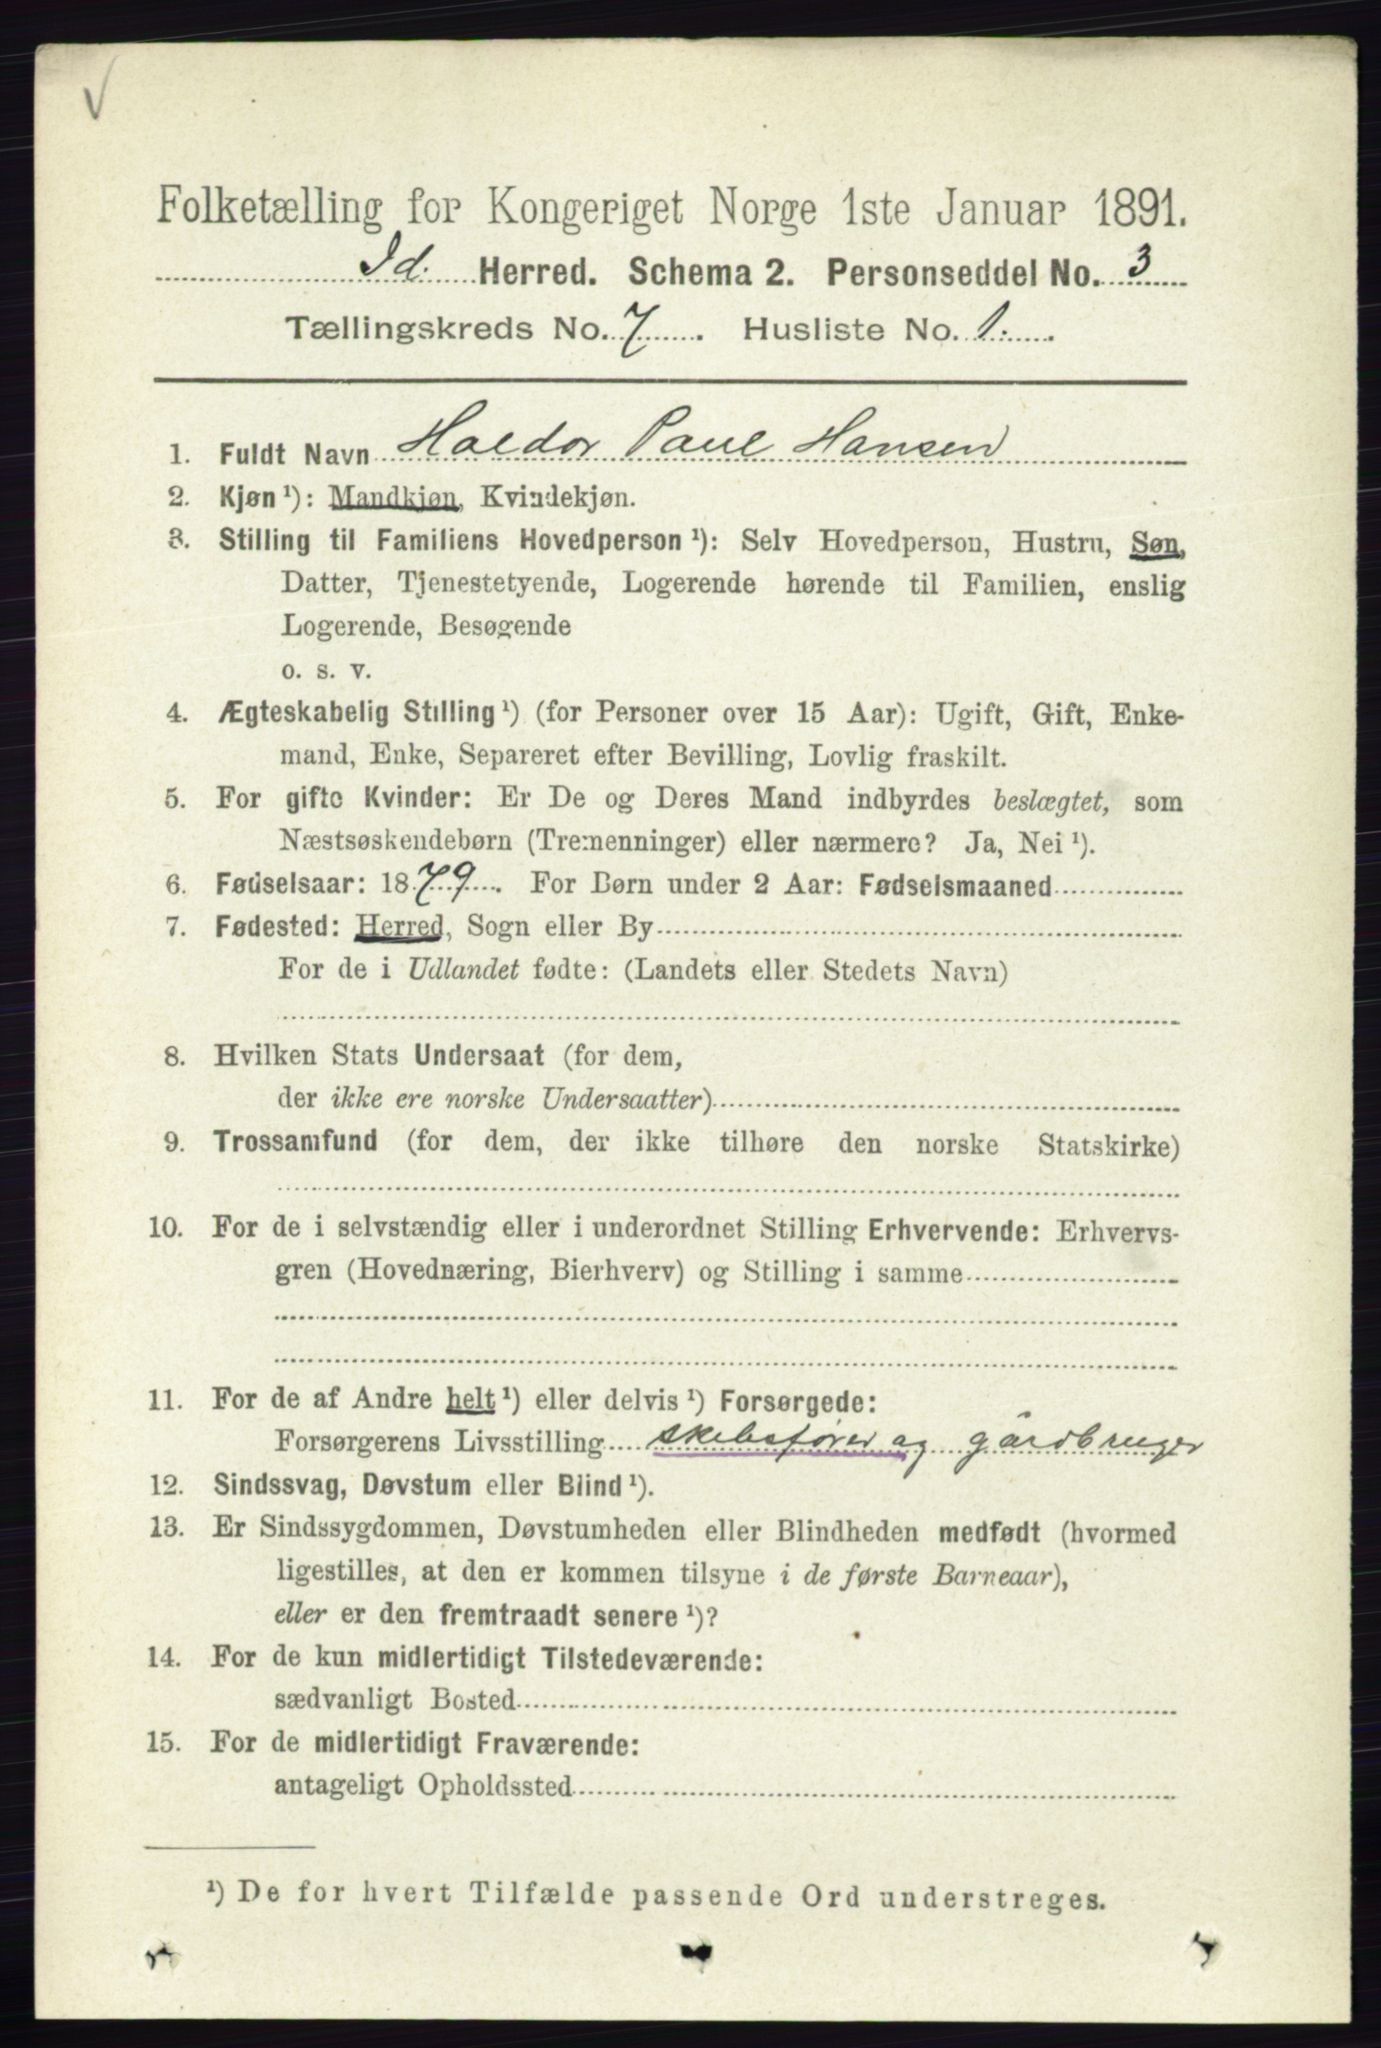 V
Folketælling for Kongeriget Norge 1ste Januar 1891.
Id. Herred. Schema 2. Personseddel No. 3
Tællingskreds No. 7. Husliste No. 1.
1. Fuldt Navn Haldor Paul Hansen
2. Kjøn ¹): Mandkjøn, Kvindekjøn.
3. Stilling til Familiens Hovedperson ¹): Selv Hovedperson, Hustru, Søn,
Datter, Tjenestetyende, Logerende hørende til Familien, enslig
Logerende, Besøgende
o. s. v.
4. Ægteskabelig Stilling ¹) (for Personer over 15 Aar): Ugift, Gift, Enke-
mand, Enke, Separeret efter Bevilling, Lovlig fraskilt.
5. For gifte Kvinder: Er De og Deres Mand indbyrdes beslægtet, som
Næstsøskendebørn (Tremenninger) eller nærmere? Ja, Nei ¹).
6. Fødselsaar: 1879. For Børn under 2 Aar: Fødselsmaaned
7. Fødested: Herred, Sogn eller By
For de i Udlandet fødte: (Landets eller Stedets Navn)
8. Hvilken Stats Undersaat (for dem,
der ikke ere norske Undersaatter)
9. Trossamfund (for dem, der ikke tilhøre den norske Statskirke)
10. For de i selvstændig eller i underordnet Stilling Erhvervende: Erhvervs-
gren (Hovednæring, Bierhverv) og Stilling i samme
11. For de af Andre helt ¹) eller delvis ¹) Forsørgede:
Forsørgerens Livsstilling skibsfører og gårdbruger
12. Sindssvag, Døvstum eller Blind ¹).
13. Er Sindssygdommen, Døvstumheden eller Blindheden medfødt (hvormed
ligestilles, at den er kommen tilsyne i de første Barneaar),
eller er den fremtraadt senere ¹)?
14. For de kun midlertidigt Tilstedeværende:
sædvanligt Bosted
15. For de midlertidigt Fraværende:
antageligt Opholdssted
¹) De for hvert Tilfælde passende Ord understreges.